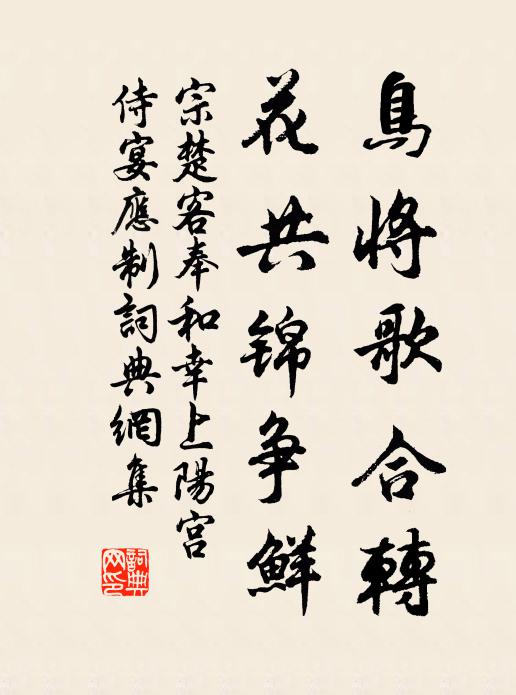 鳥將歌合轉
花共錦争鮮
宗楚客奉和幸上陽宮
侍宴應制詞典網集
詞典網印